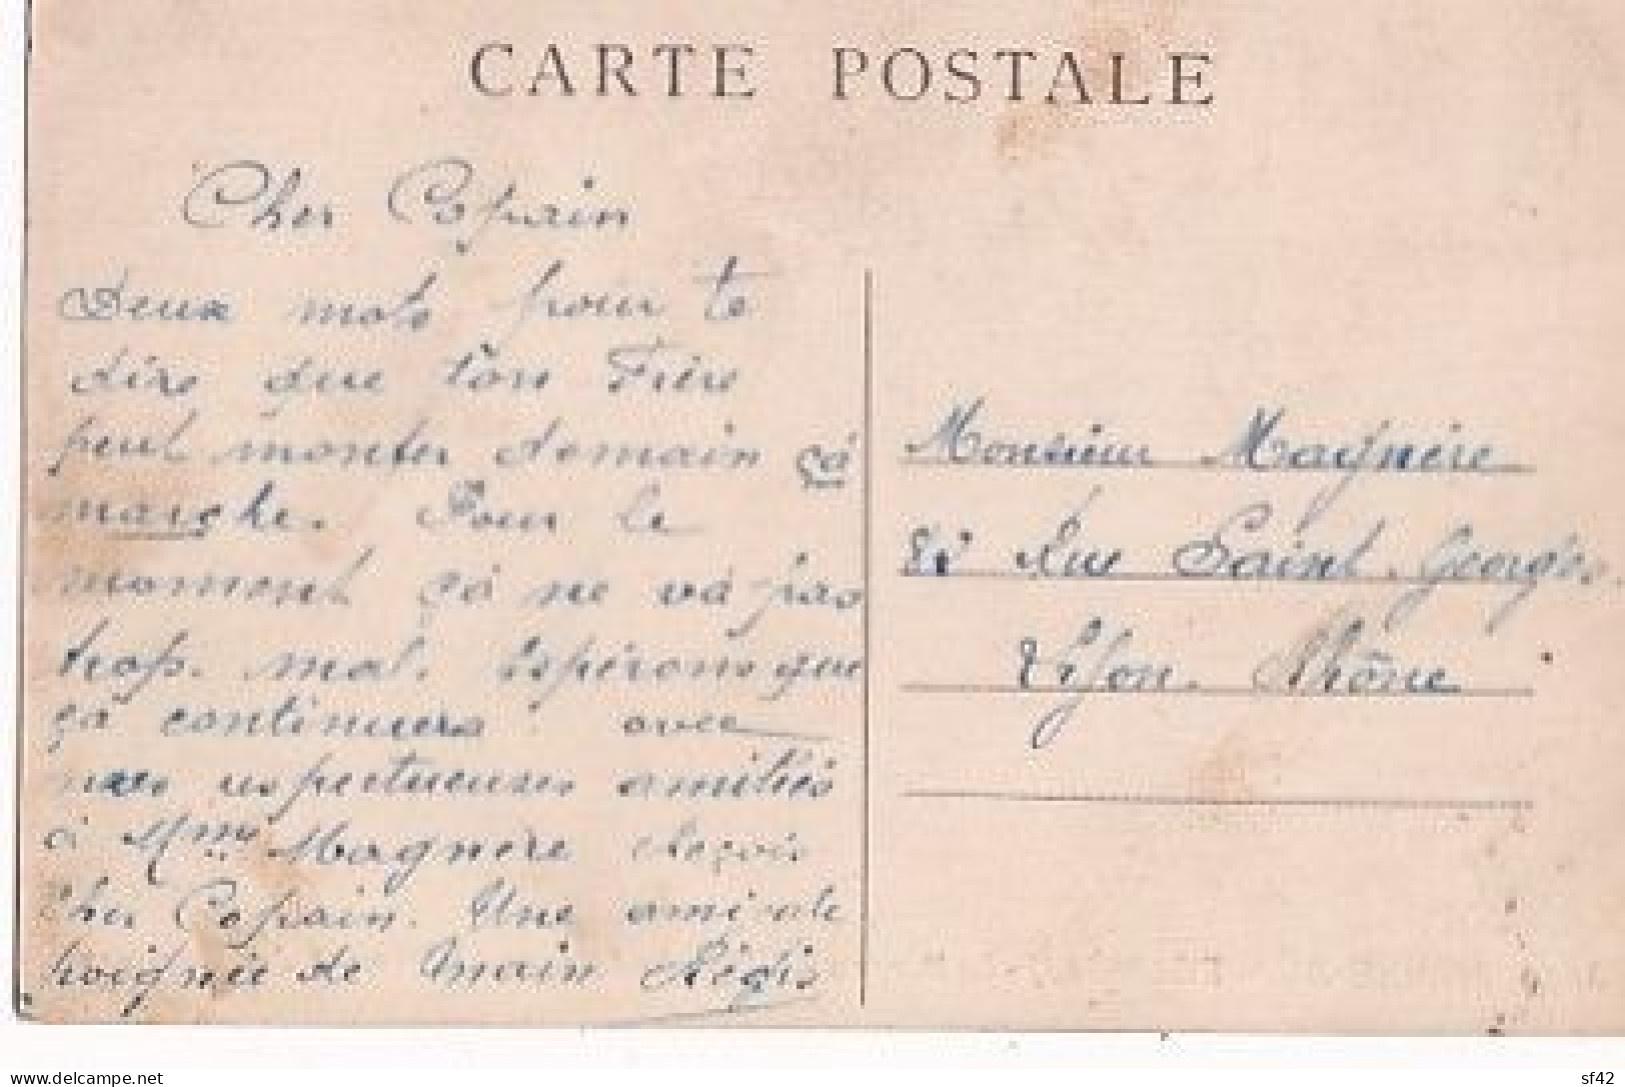 CARTE POSTALE
Cher Copain
Deux mots pour te
dire que ton Frère
peut monter demain ça
marche. Pour le
moment ça ne va pas
trop. mal. Espérons que
ça continuera. avec
mes respectueuses amitiés
à Mme Magnère Reçois
Cher Copain. Une amicale
poignée de main Régis
Monsieur Magnère
Rue Saint. Georges
Lyon. Rhône.
https://www.delcampe.net
sf42